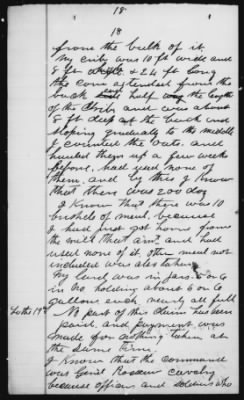 18
18
from the bulk of it.
My crib was 10 ft wide and
8 ft & 24 ft long
the corn extended from the
back half way the length
of the Crib and was about
8 ft deep at the back and
sloping gradually to the middle
I counted the oats, and
hauled them up a few weeks
before, had used none of
them, and by this I know
that there was 200 doz
I Know that there was 10
bushels of meal, because
I had just got home from
the mill that am, and had
used none of it, other meal not
included was also taken
My lard was in jars 5 or 6
in No holding about 5 or 6
gallons each nearly all full
To the 19th No part of this claim has been
paid, and payment was
made for nothing taken at
the same time.
I Know that the command
was Genl Rosseau cavalry
because officers and soldiers who